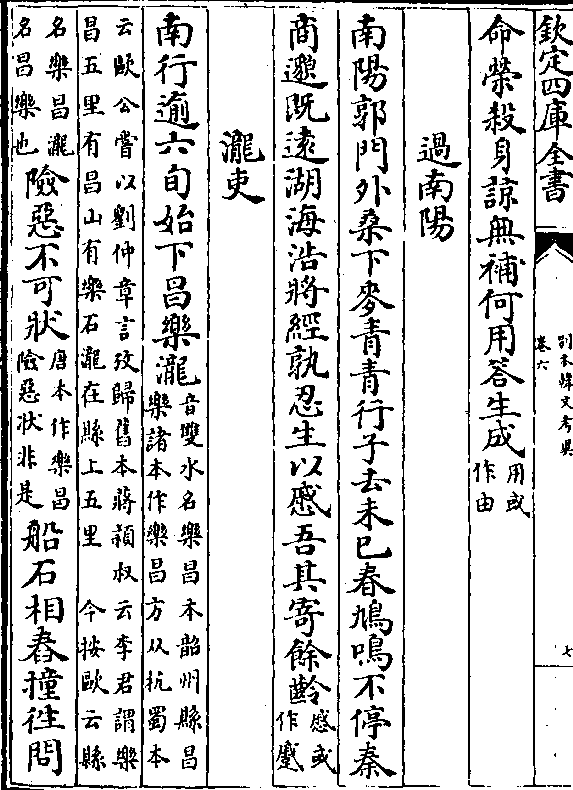 欽定四庫全書
別本韓文考異
卷六
七
命榮殺身諒無補何用答生成用或作由
過南陽
南陽郭門外桑下麥青青行子去未已春鳩鳴不停秦
商邈既遠湖海浩將經孰忍生以慼吾其寄餘齡慼或作蹙
瀧吏
南行逾六旬始下昌樂瀧音雙水名樂昌本韶州縣昌樂諸本作樂昌方从杭蜀本
云歐公嘗以劉仲章言攷歸舊本蔣穎叔云李君謂樂昌五里有昌山有樂石瀧在縣上五里今按歐云縣
名樂昌瀧名昌樂也險惡不可狀唐本作樂昌險惡狀非是船石相舂撞徃問